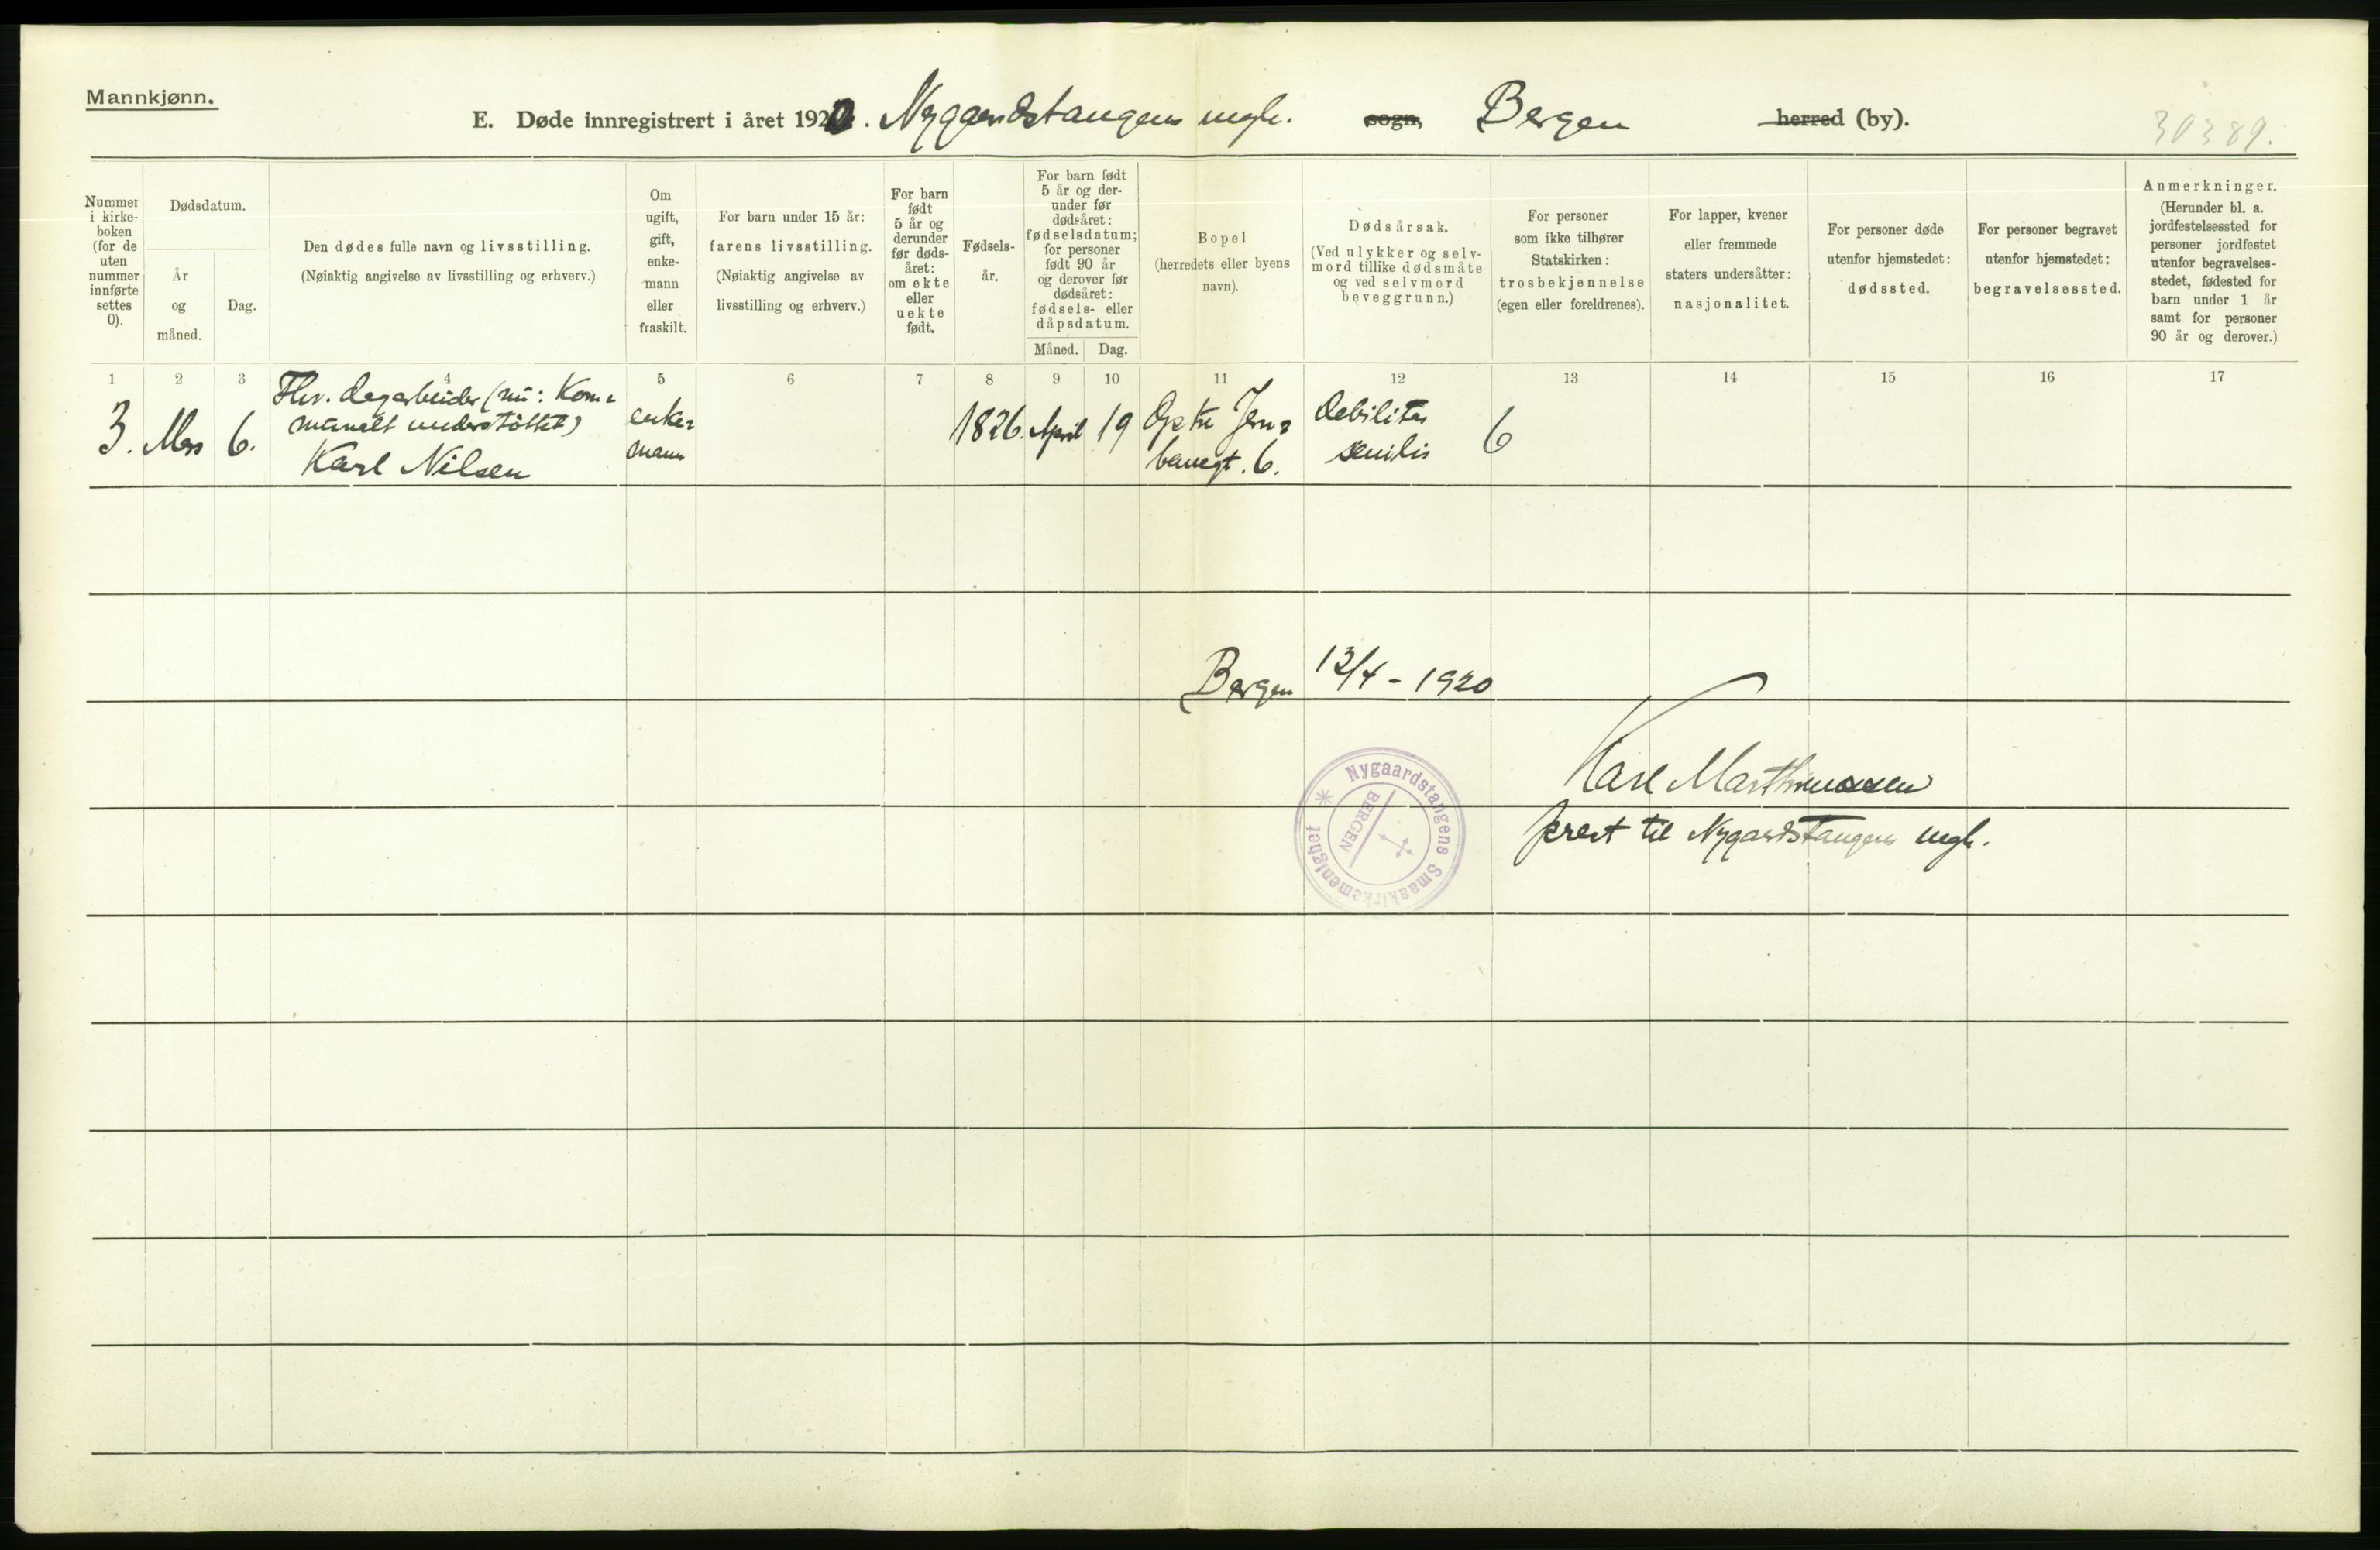 Mannkjønn.
E. Døde innregistrert i året 1920. Nygaardstangens mgh. sogn, Bergen herred (by).
30389.
Nummer
i kirke-
boken
(for de
uten
nummer
innførte
settes
0).
Dødsdatum.
År
og
måned.
Dag.
Den dødes fulle navn og livsstilling.
(Nøiaktig angivelse av livsstilling og erhverv.)
Om
ugift,
gift,
enke-
mann
eller
fraskilt.
For barn under 15 år:
farens livsstilling.
(Nøiaktig angivelse av
livsstilling og erhverv.)
For barn
født
5 år og
derunder
før døds-
året:
om ekte
eller
uekte
født.
Fødsels-
år.
For barn født
5 år og der-
under før
dødsåret:
fødselsdatum;
for personer
født 90 år
og derover før
dødsåret:
fødsels- eller
dåpsdatum.
Måned. Dag.
Bopel
(herredets eller byens
navn).
Dødsårsak.
(Ved ulykker og selv-
mord tillike dødsmåte
og ved selvmord
beveggrunn.)
For personer
som ikke tilhører
Statskirken:
trosbekjennelse
(egen eller foreldrenes).
For lapper, kvener
eller fremmede
staters undersåtter:
nasjonalitet.
For personer døde
utenfor hjemstedet:
dødssted.
For personer begravet
utenfor hjemstedet:
begravelsessted.
Anmerkninger.
(Herunder bl. a.
jordfestelsessted for
personer jordfestet
utenfor begravelses-
stedet, fødested for
barn under 1 år
samt for personer
90 år og derover.)
1 2 3 4 5 6 7 8 9 10 11 12 13 14 15 16 17
3. Mars 6.
Fhv. dagarbeider (nu: Kom=
munalt understøttet)
Karl Nilsen
enke=
mann
1826. April 19
Øvre Jern=
banegt. 6.
Debilitas
senilis
6
Bergen 12/4 - 1920
Karl Marthinussen
prest til Nygardstangens mgh.
Nygaardstangens Smaakirkemenighet
BERGEN